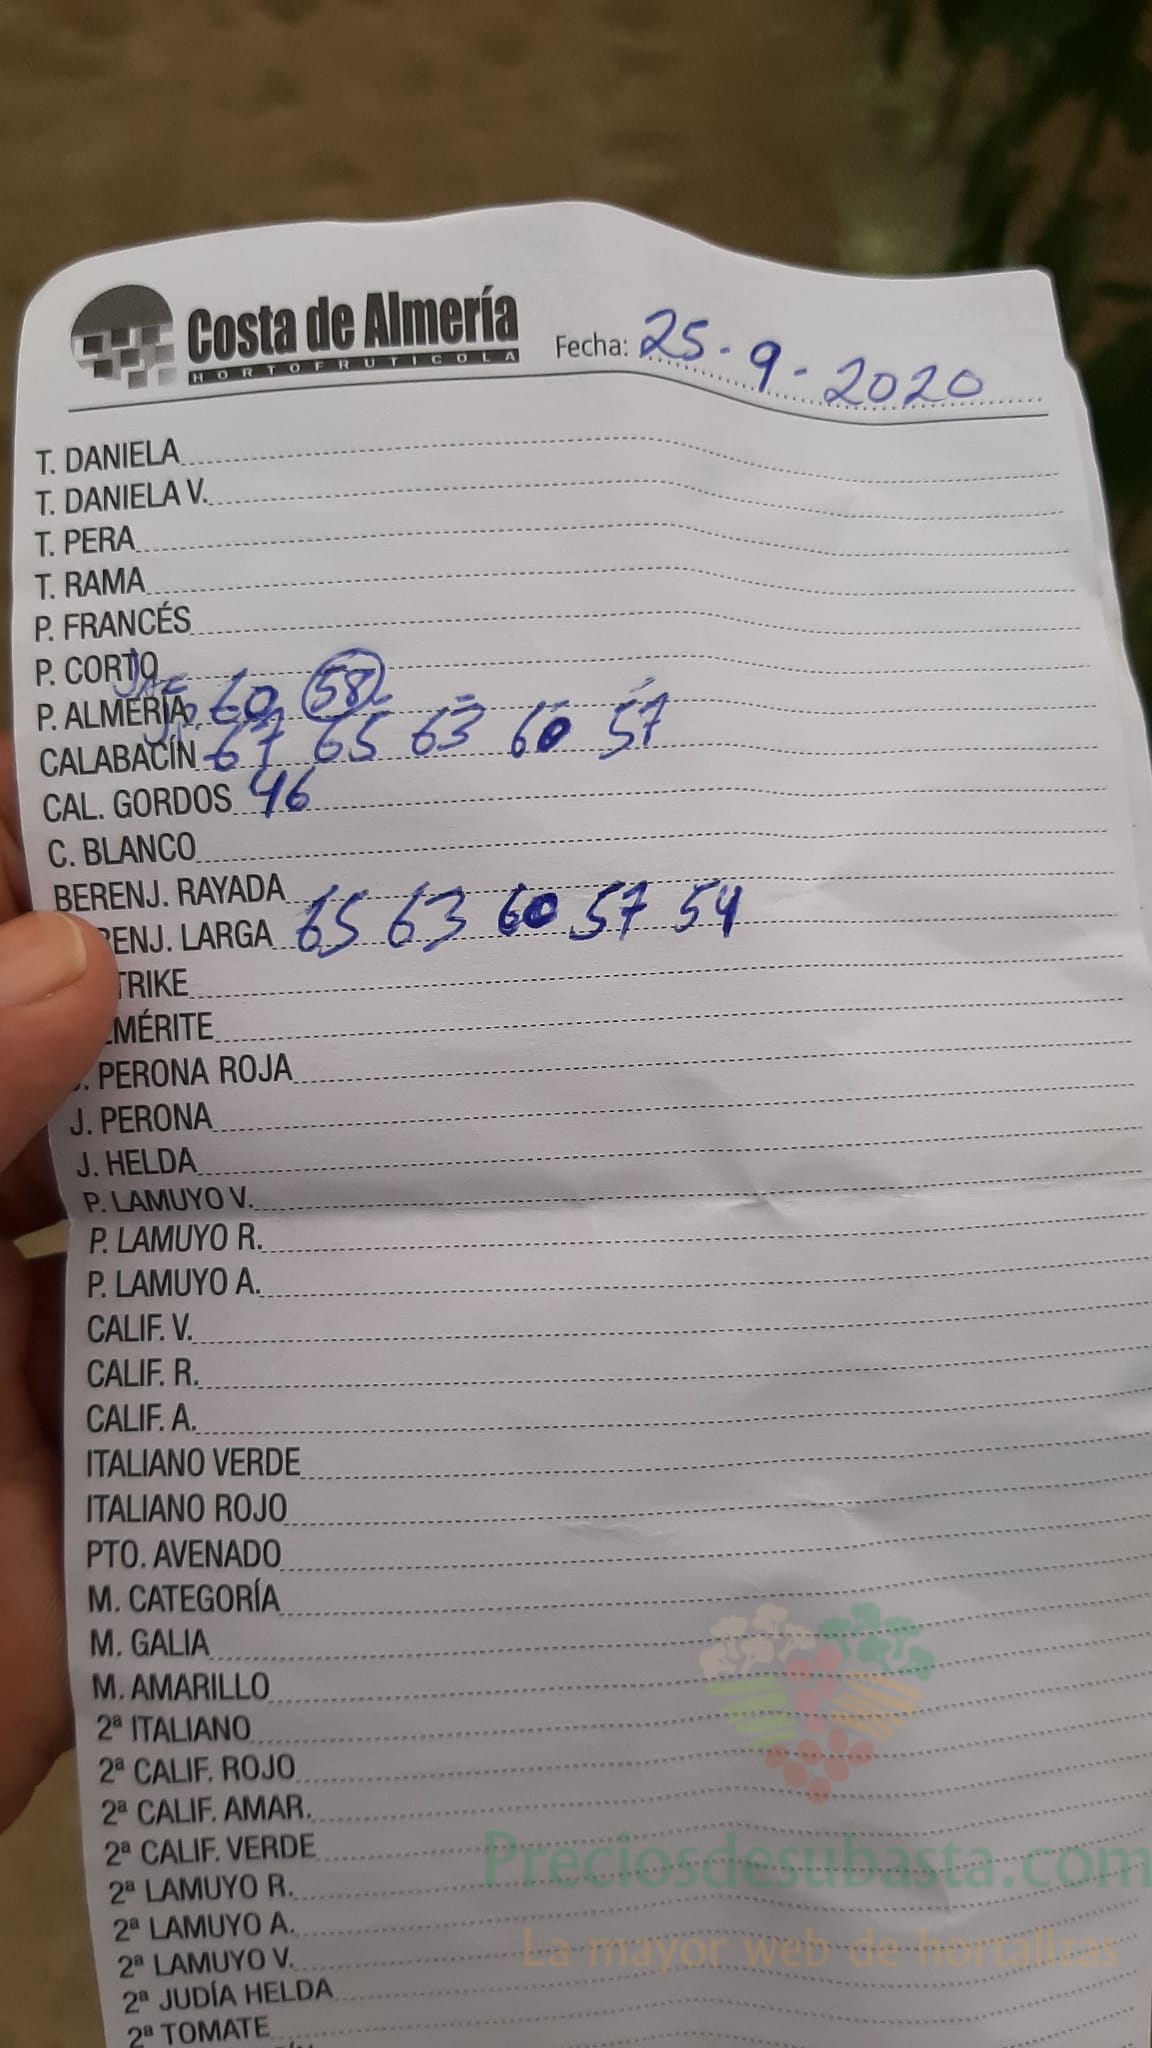 Costa de Almería
HORTOFRUTICOLA
Fecha: 25-9-2020
T. DANIELA
T. DANIELA V.
T. PERA
T. RAMA
P. FRANCÉS
P. CORTO
P. ALMERÍA 60 58
CALABACÍN 67 65 63 60 57
CAL. GORDOS 46
C. BLANCO
BERENJ. RAYADA
RENJ. LARGA 65 63 60 57 54
TRIKE
MÉRITE
. PERONA ROJA
J. PERONA
J. HELDA
P. LAMUYO V.
P. LAMUYO R.
P. LAMUYO A.
CALIF. V.
CALIF. R.
CALIF. A.
ITALIANO VERDE
ITALIANO ROJO
PTO. AVENADO
M. CATEGORÍA
M. GALIA
M. AMARILLO
2ª ITALIANO
2ª CALIF. ROJO
2ª CALIF. AMAR.
2ª CALIF. VERDE
2ª LAMUYO R.
2ª LAMUYO A.
2ª LAMUYO V.
2ª JUDÍA HELDA
2ª TOMATE
Preciosdesubasta.com
La mayor web de hortalizas